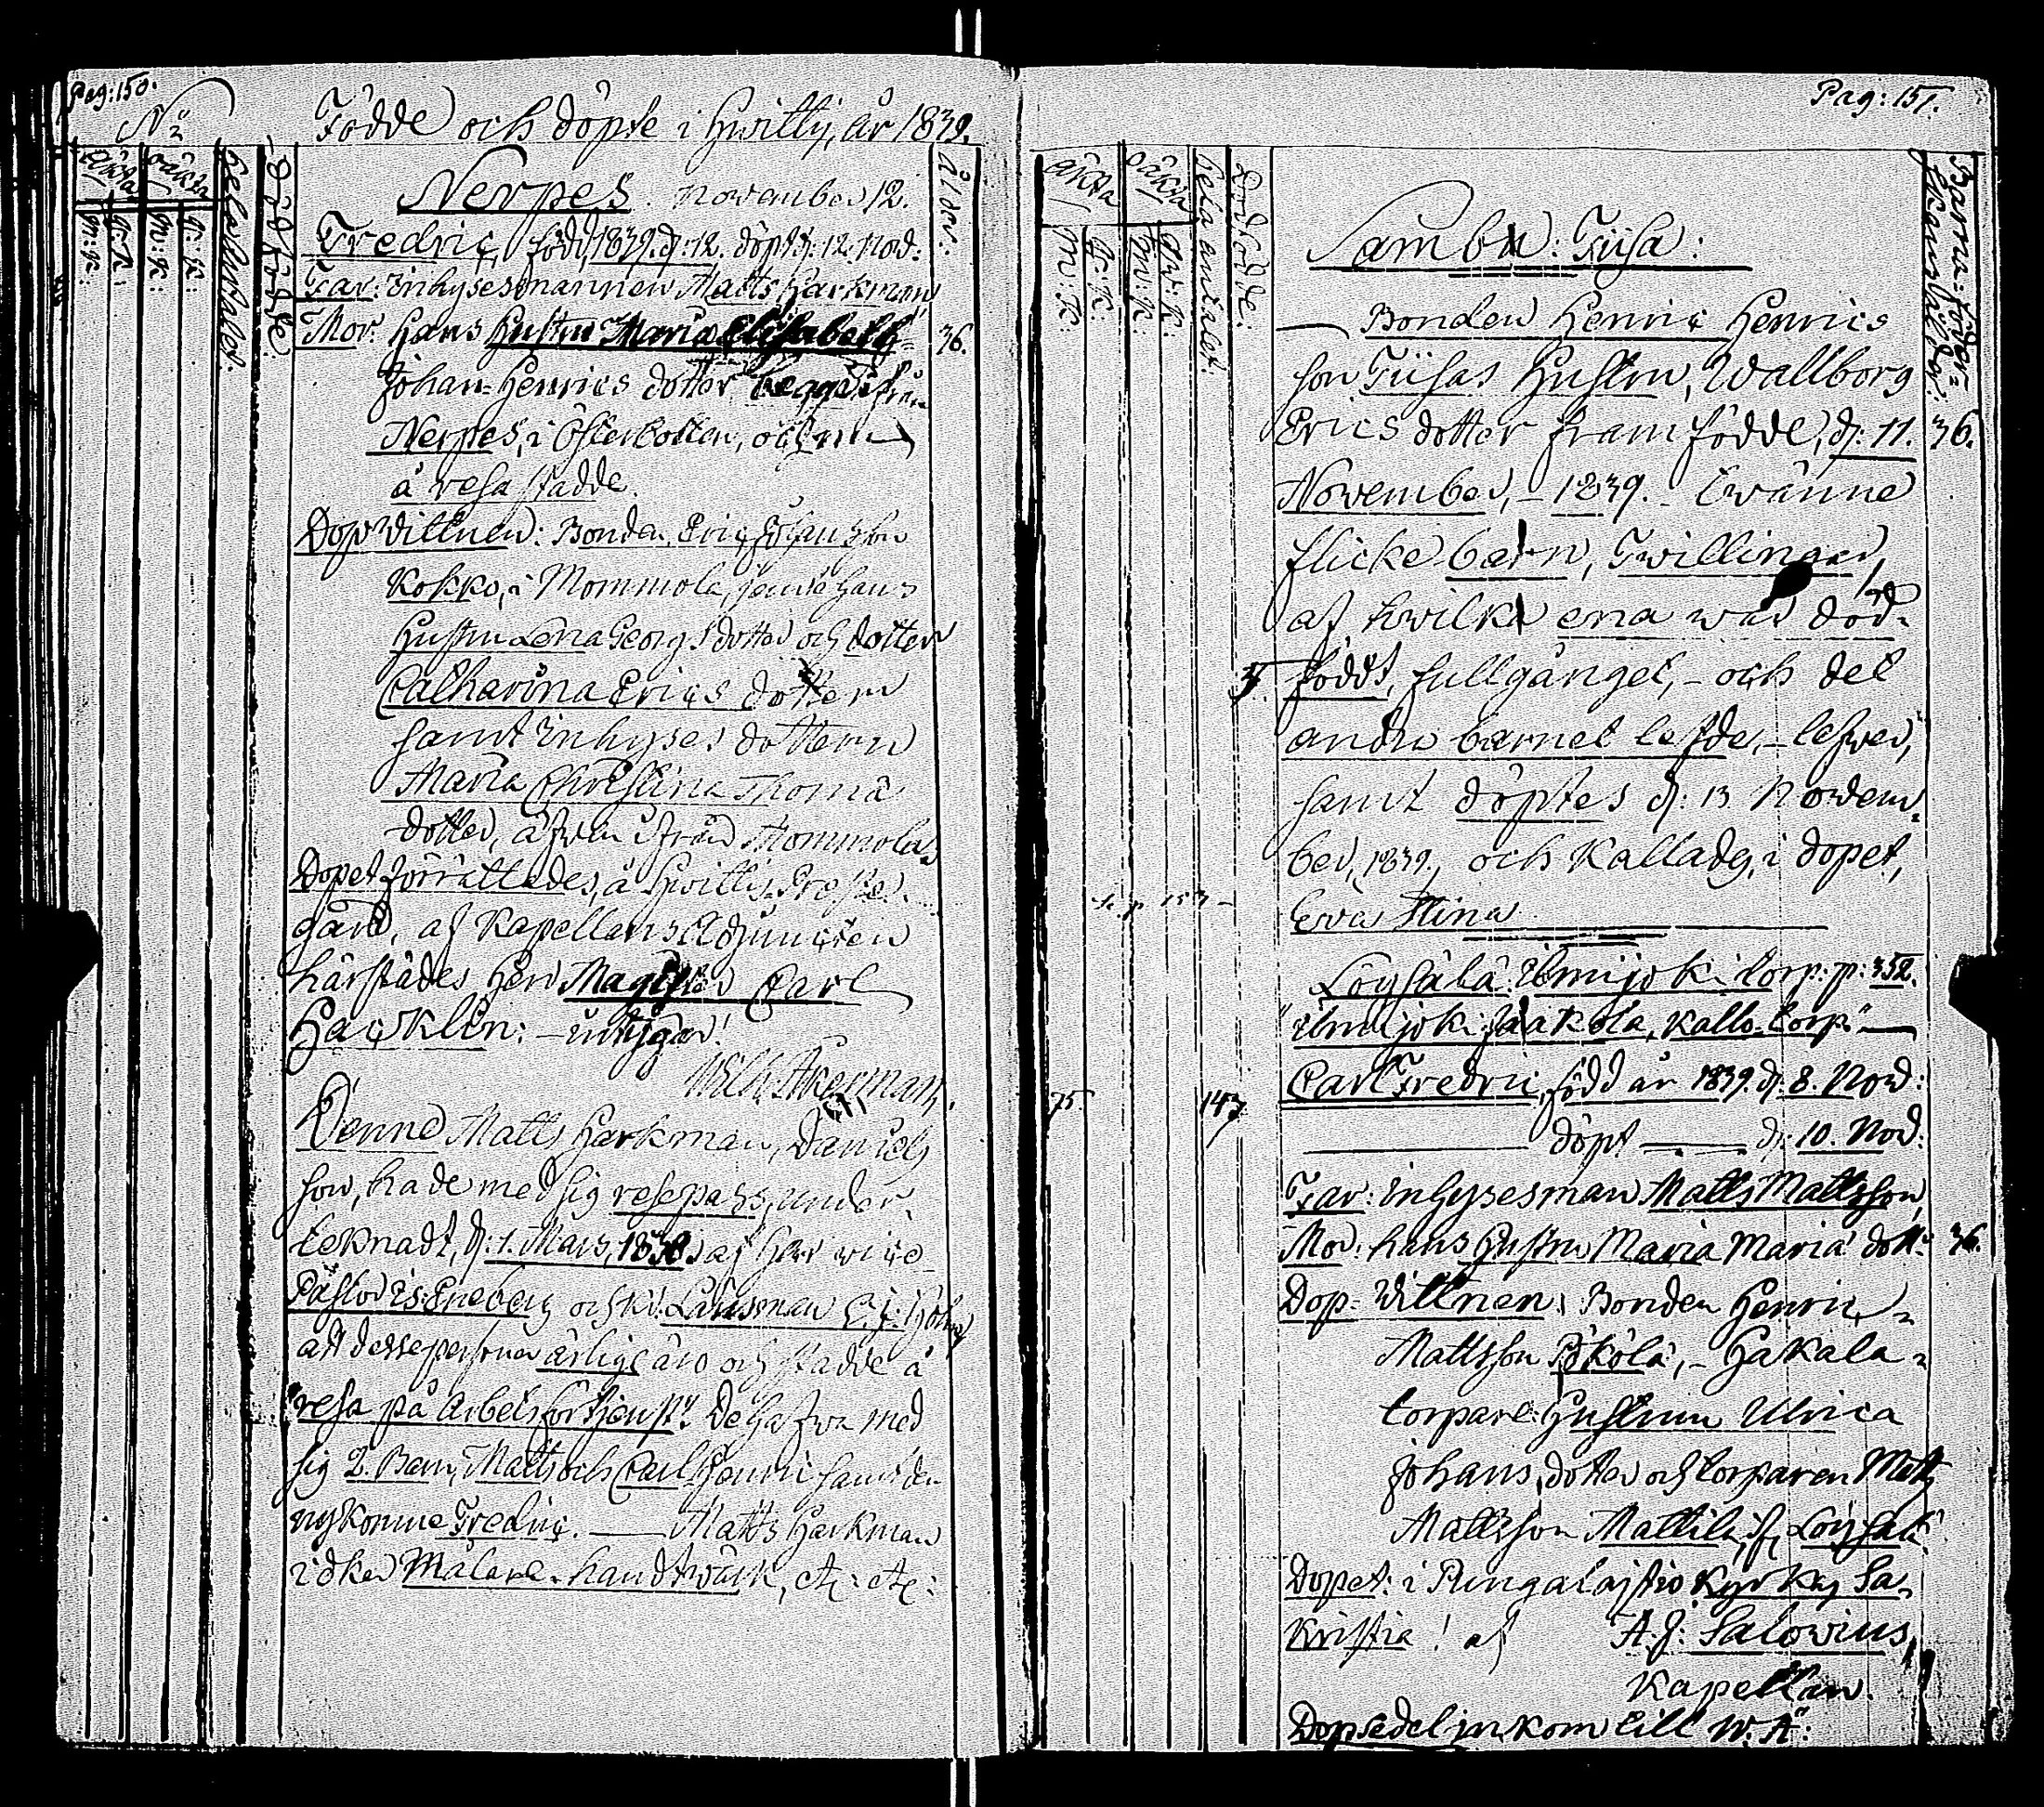 Pag: 150.
No
Födde och döpte i Hwittis, år 1839.
äkta
oäkta
Hela Antalet.
Dödfödde.
Ålder:
m: k:
qv: k:
m: k:
qv: k:
Nerpes. November 12.
Fredric, född, 1839. d: 12. döpt d: 12. Nov:
Far: Inhysesmannen Matts Harkman,
Mor: hans hustru Maria Elisabeth 36.
Johan-Henrics dotter begge ifrån
Nerpes, i Österbotten, och nu
å resa stadde.
Dop Wittnen: Bonden, Eric Johansson
Kokko, i Mommola, jemte hans
hustru Lena Georgs dotter och dottern
Catharina Erics dotter
samt Inhyses dottern
Maria Christina Thomæ
dotter, äfwen ifrån Mommola.
Dopet förrättades, å Hwittis Preste-
gård, af Kapellans Adjuncten
härstädes herr Magister Carl
Hacklin: – intygar!
Wilh. Åkerman.
Denne Matts Harkman, Daniels
son, hade med sig resepass, under-
teknadt, d: 1. Mars, 1838. af Herr vice
Pastor Is: Eneberg och Kr: Länsman C. J: Holm
att desse personer ärlige äro och stadde å
"resa på Arbetsförtjenst". De hafwa med
sig 2. Barn, Matts och Carl Henric samt den
nykomne Fredric. — Matts Harkman
idkar Målare-handtwärk, etc: etc:
Pag: 151.
äkta
oäkta
Hela antalet.
Dödfödde.
Barna-föder-
skans ålder.
m: k:
qv: k:
m: k:
qv: k:
Sambu: Tiisa:
Bonden Henric Henrics
son Tiisas Hustru, Wallborg
Erics dotter framfödde, d: 11. 36.
November, – 1839. – twänne
flicke barn, Twillingar,
af hwilka ena war död-
födt, fullgånget, – och det
andra barnet lefde, – lefwer,
samt döptes d: 13 Novem-
ber, 1839, och kallades, i dopet,
Eva Stina
Löysälä: Ilmijoki torp: p: 352.
"Ilmijoki Jaakola, Kallo-torp" —
75. 147 Carl Fredric, född år 1839. d: 8. Nov:
döpt — d: 10. Nov:
Far: Inhysesman Matts Mattsson,
Mor: hans hustru Maria Mariæ dott: 36.
Dop-Wittnen: Bonden Henric
Mattsson Pökölä, – Hakala-
torpare: hustrun Ulrica
Johans dotter och torparen Matts
Mattsson Mattila, if: Löysälä.
Dopet: i Pungalaitio Kyrkas Sa-
kristia! af A: J: Salovius,
Kapellan.
Dopsedel inkom till W. Å: